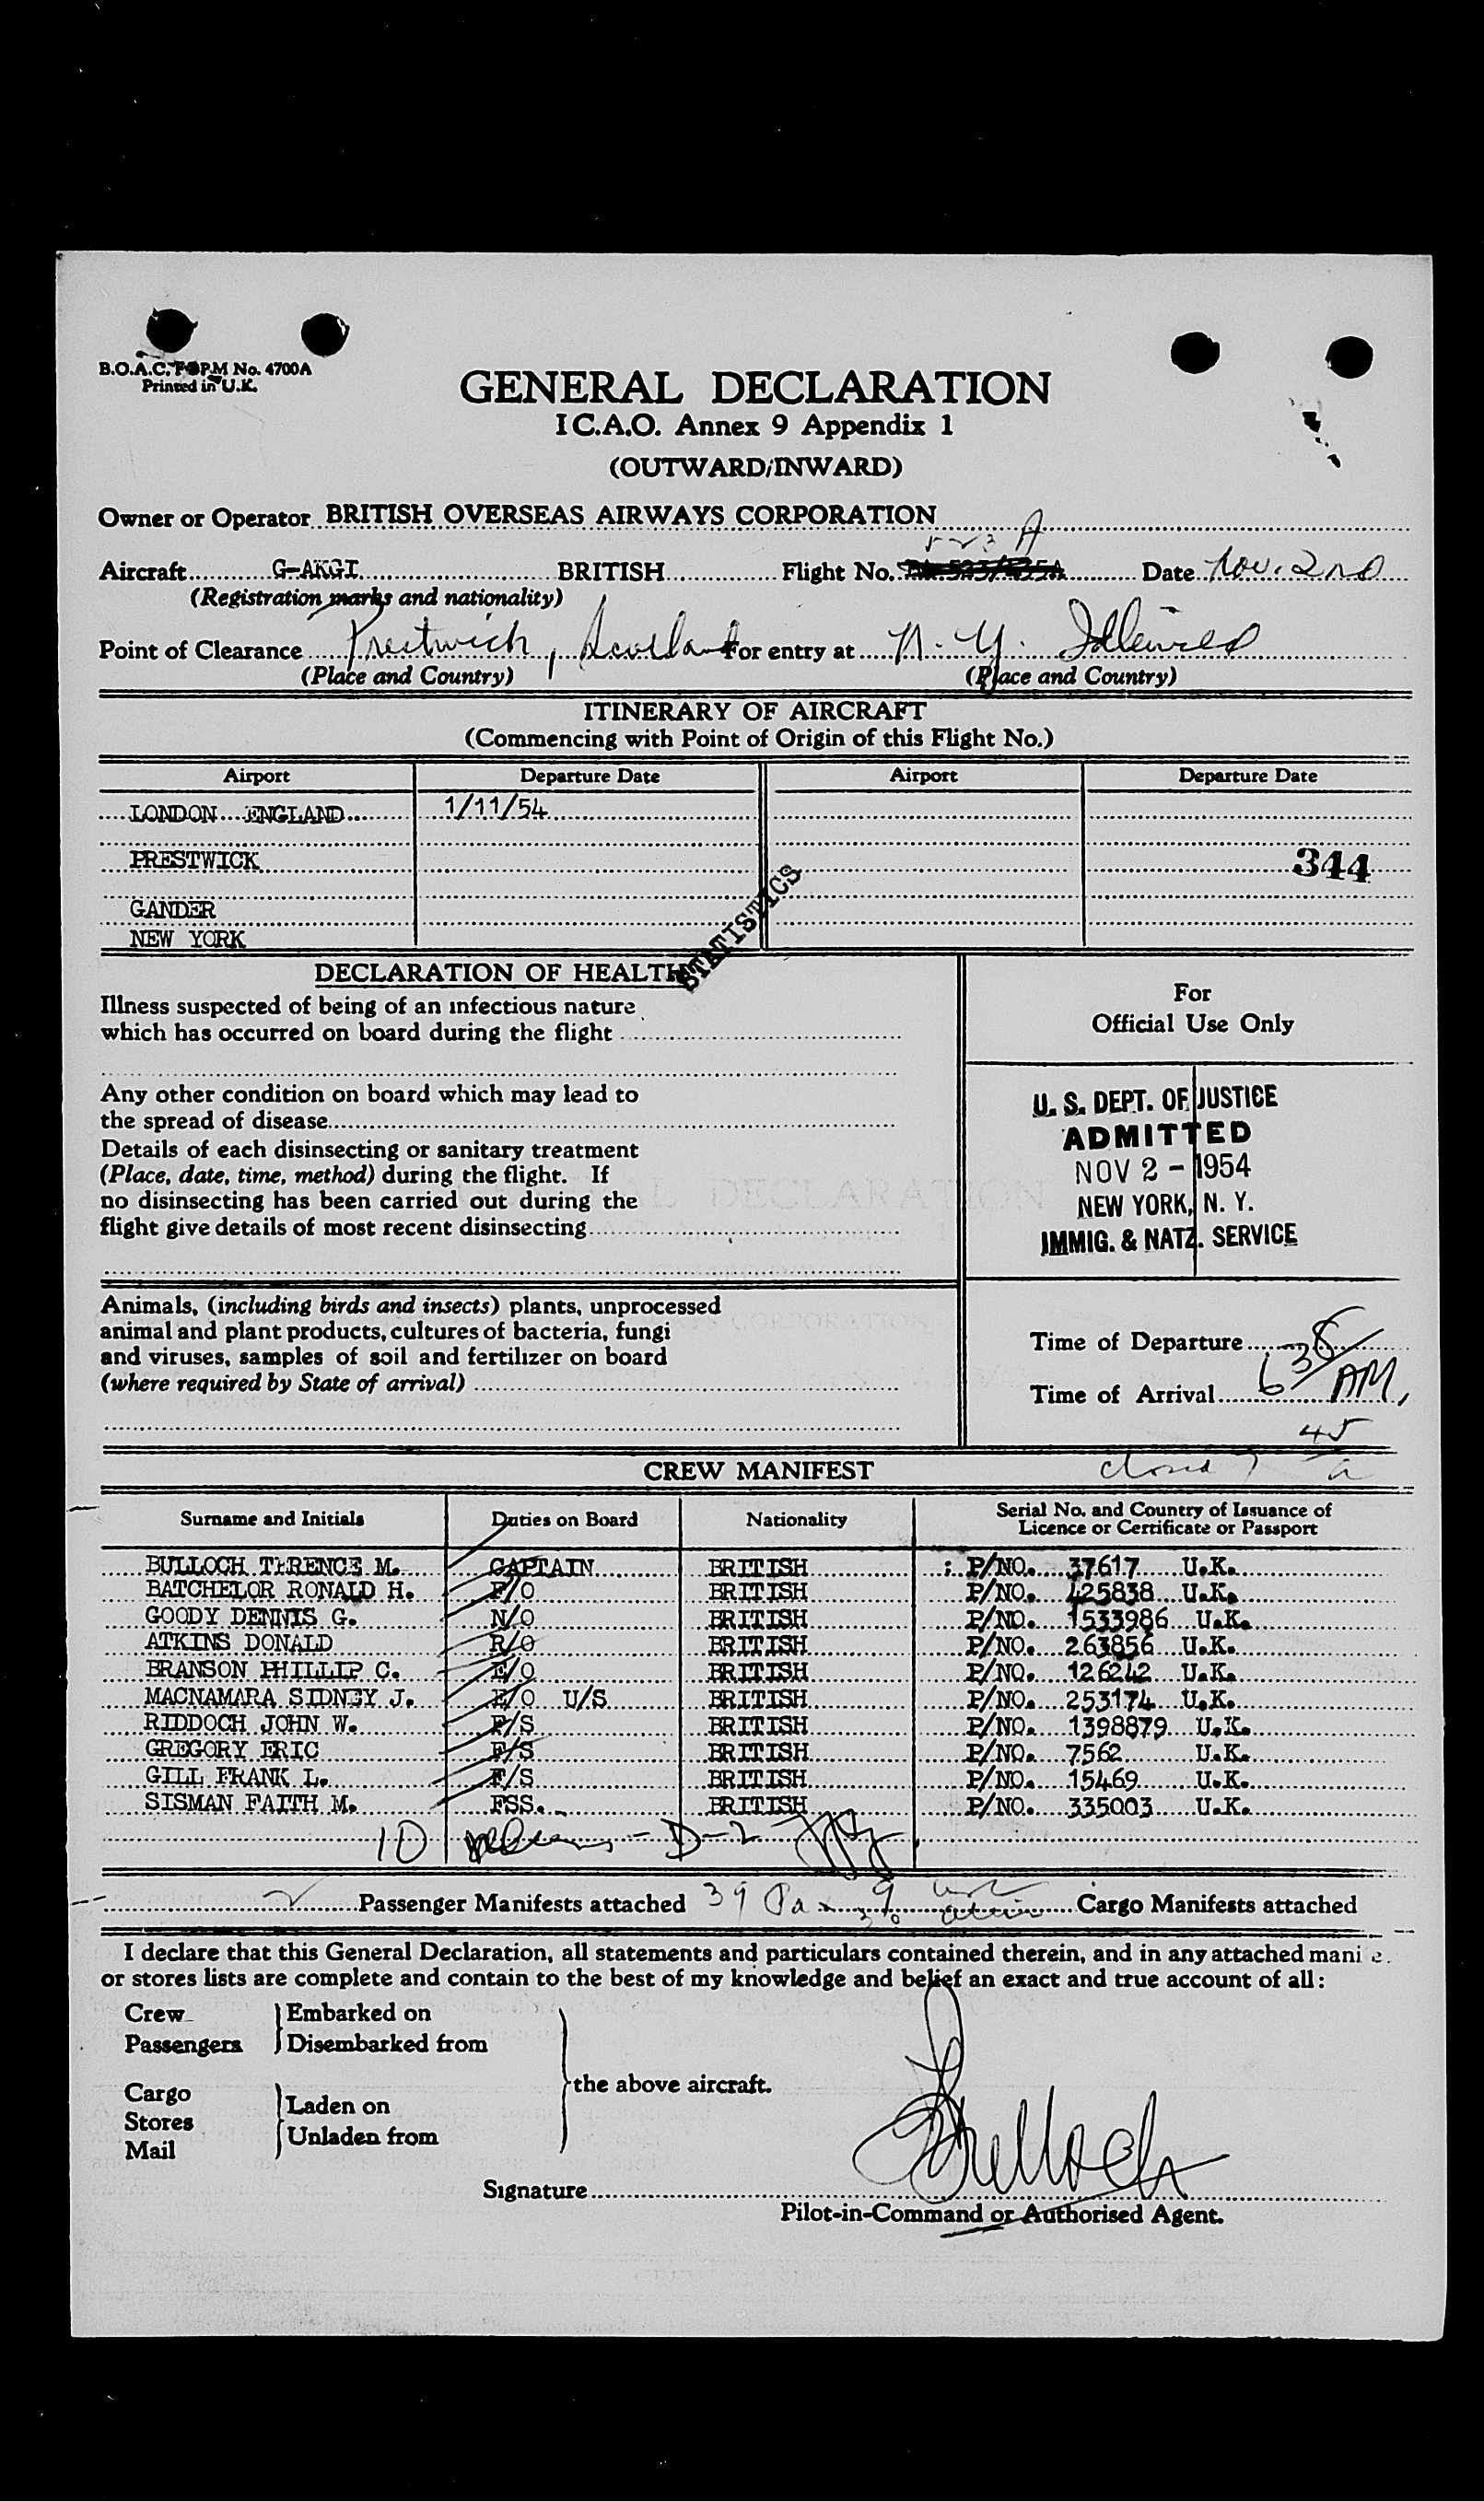 B.O.A.C. FORM No. 4700A
Printed in U.K.
GENERAL DECLARATION
I C.A.O. Annex 9 Appendix 1
(OUTWARD/INWARD)
Owner or Operator BRITISH OVERSEAS AIRWAYS CORPORATION
523 A
Aircraft G-AKGI BRITISH Flight No. Date Nov. 2nd
(Registration marks and nationality)
Point of Clearance Prestwich, Scotland For entry at N. Y. Idlewild
(Place and Country) (Place and Country)
ITINERARY OF AIRCRAFT
(Commencing with Point of Origin of this Flight No.)
Airport Departure Date Airport Departure Date
LONDON ENGLAND 1/11/54
PRESTWICK 344
GANDER
NEW YORK
STATISTICS
DECLARATION OF HEALTH
Illness suspected of being of an infectious nature
which has occurred on board during the flight
Any other condition on board which may lead to
the spread of disease
Details of each disinsecting or sanitary treatment
(Place, date, time, method) during the flight. If
no disinsecting has been carried out during the
flight give details of most recent disinsecting
For
Official Use Only
U. S. DEPT. OF JUSTICE
ADMITTED
NOV 2 - 1954
NEW YORK, N. Y.
IMMIG. & NATZ. SERVICE
Animals, (including birds and insects) plants, unprocessed
animal and plant products, cultures of bacteria, fungi
and viruses, samples of soil and fertilizer on board
(where required by State of arrival)
Time of Departure
Time of Arrival 6 38 AM
closed 7 45 a
CREW MANIFEST
Surname and Initials Duties on Board Nationality Serial No. and Country of Issuance of
Licence or Certificate or Passport
BULLOCH TERENCE M. CAPTAIN BRITISH : P/NO. 37617 U.K.
BATCHELOR RONALD H. F/O BRITISH P/NO. 425838 U.K.
GOODY DENNIS G. N/O BRITISH P/NO. 1533986 U.K.
ATKINS DONALD R/O BRITISH P/NO. 263856 U.K.
BRANSON PHILLIP C. E/O BRITISH P/NO. 126242 U.K.
MACNAMARA SIDNEY J. E/O U/S BRITISH P/NO. 253174 U.K.
RIDDOCH JOHN W. F/S BRITISH P/NO. 1398879 U.K.
GREGORY ERIC F/S BRITISH P/NO. 7562 U.K.
GILL FRANK L. F/S BRITISH P/NO. 15469 U.K.
SISMAN FAITH M. FSS. BRITISH P/NO. 335003 U.K.
10 D-2
Passenger Manifests attached 39 Pax Cargo Manifests attached
I declare that this General Declaration, all statements and particulars contained therein, and in any attached mani e.
or stores lists are complete and contain to the best of my knowledge and belief an exact and true account of all:
Crew Embarked on
Passengers Disembarked from
the above aircraft.
Cargo
Stores Laden on
Mail Unladen from
Signature Bulloch
Pilot-in-Command or Authorised Agent.